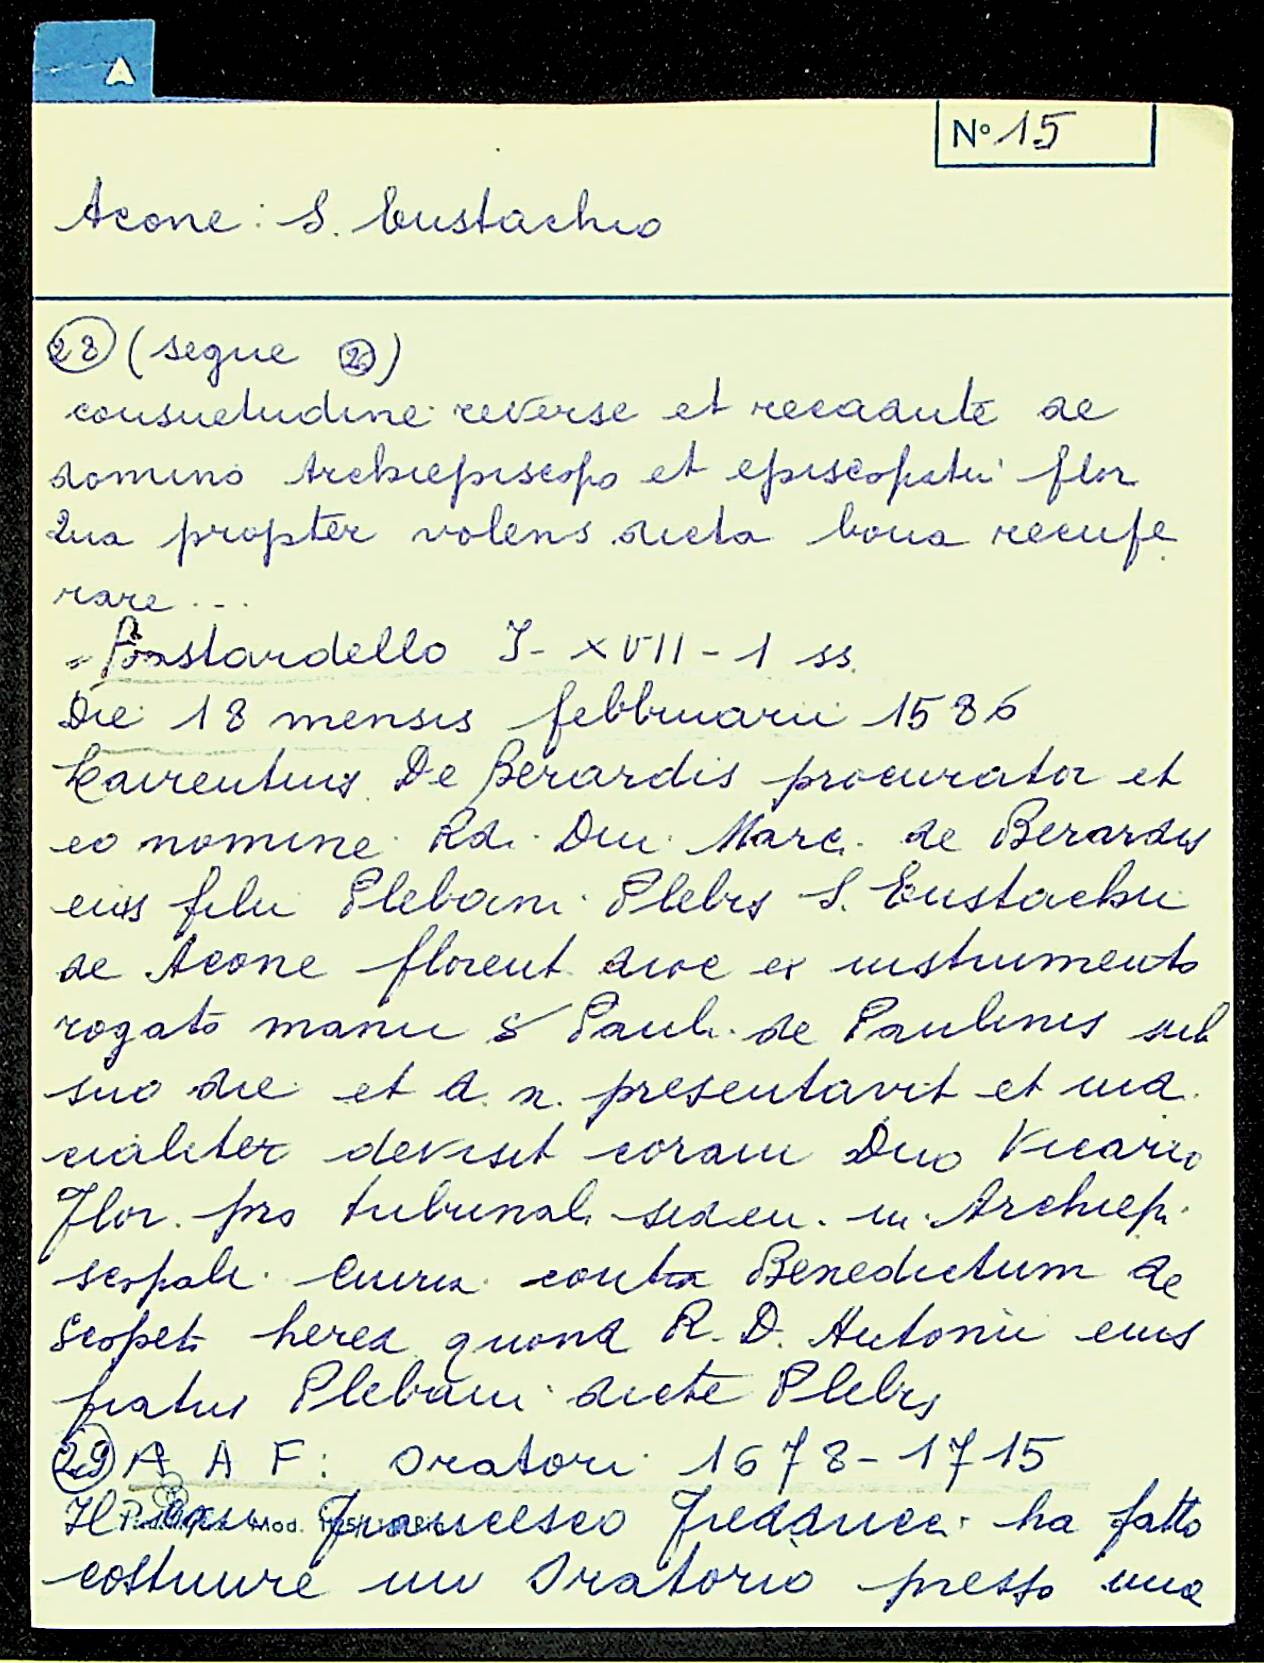 A
N° 15
Acone: S. Eustachio
28 (segue 2)
consuetudine reverse et recadute ae
domino Archiepiscopo et episcopatui flor
Qua propter volens dicta bona recupe
rare ...
= Bastardello I - XVII - 1 ss.
Die 18 mensis febbruarii 1586
Laurentius De Berardis procurator et
eo nomine Rdi. Dni. Marci. de Berardis
eius filii Plebani Plebis S. Eustachii
de Acone florent. dioc ex instrumento
rogato manu S Pauli de Paulinis sub
suo die et a. n. presentavit et iudi
cialiter devisit coram Dno Vicario
Flor. pro tribunali seden. in Archiepi
scopali Curia contra Benedictum de
Scopeti hered quond R. D. Antonii eius
fratris Plebani dicte Plebis
29 A A F: Oratori 1678-1715
Il Francesco ha fatto
costruire un Oratorio presso una